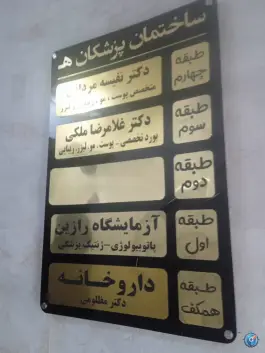 ساختمان پزشکان هـ
طبقه چهارم
دکتر نفیسه
متخصص پوست، مو، لیزر
طبقه سوم
دکتر غلامرضا ملکی
بورد تخصصی - پوست، مو، لیزر، زیبایی
طبقه دوم
طبقه اول
آزمایشگاه رازین
پاتوبیولوژی - ژنتیک پزشکی
طبقه همکف
داروخانه
دکتر مظلومی